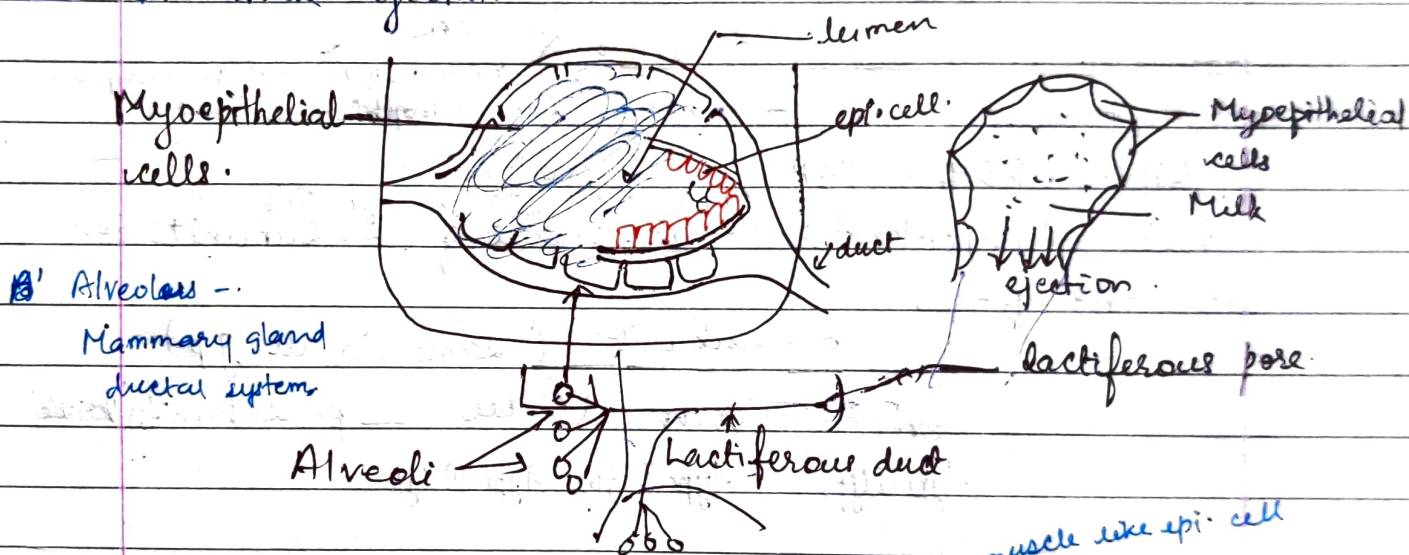 lumen
Myoepithelial
cells.
epi.cell.
Myoepithelial
cells
Milk
duct
ejection.
Alveolus -.
Mammary gland
ductal system
lactiferous pore
Alveoli
Lactiferous duct
muscle like epi. cell